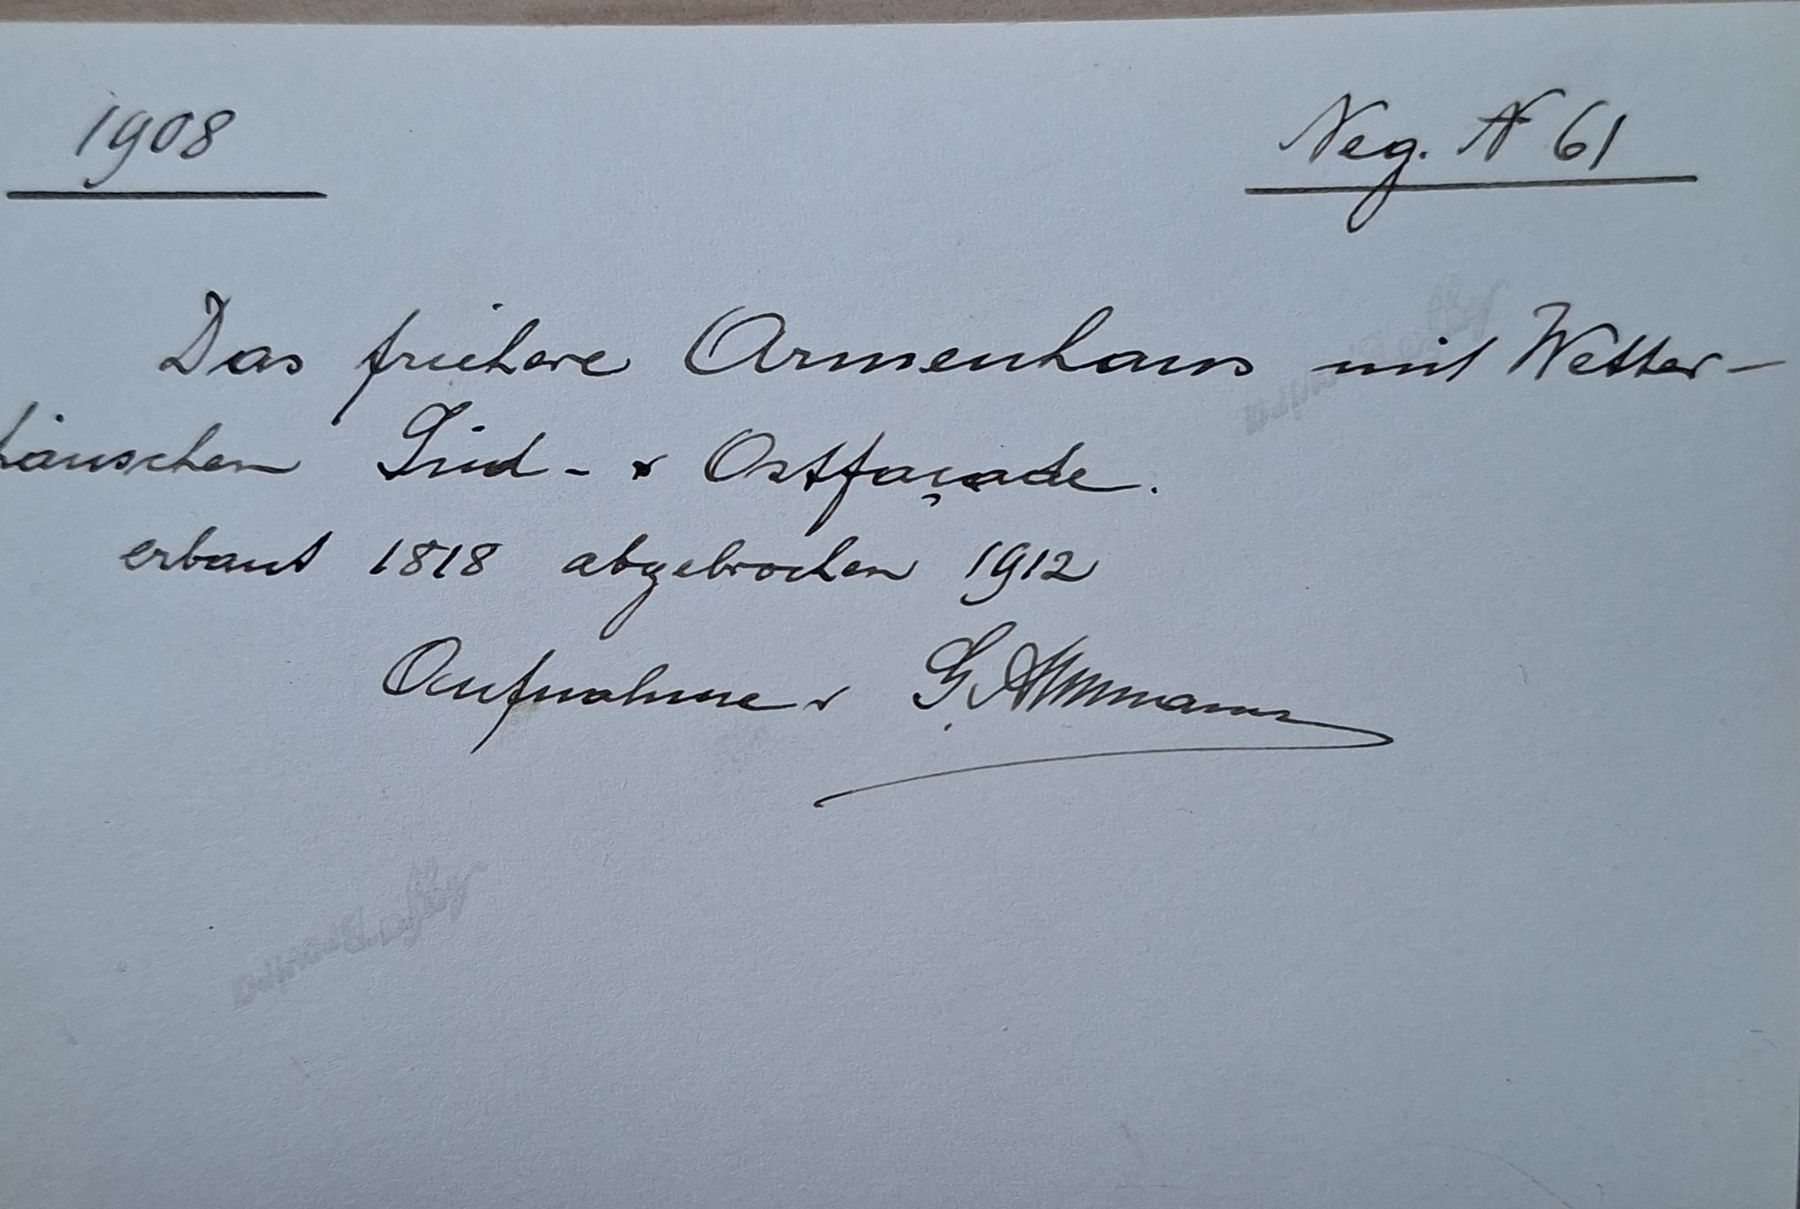 1908
Neg. N 61
Das frühere Armenhaus mit Wetter-
häuschen Süd- & Ostfaçade.
erbaut 1818 abgebrochen 1912
Aufnahme v G. Ammann